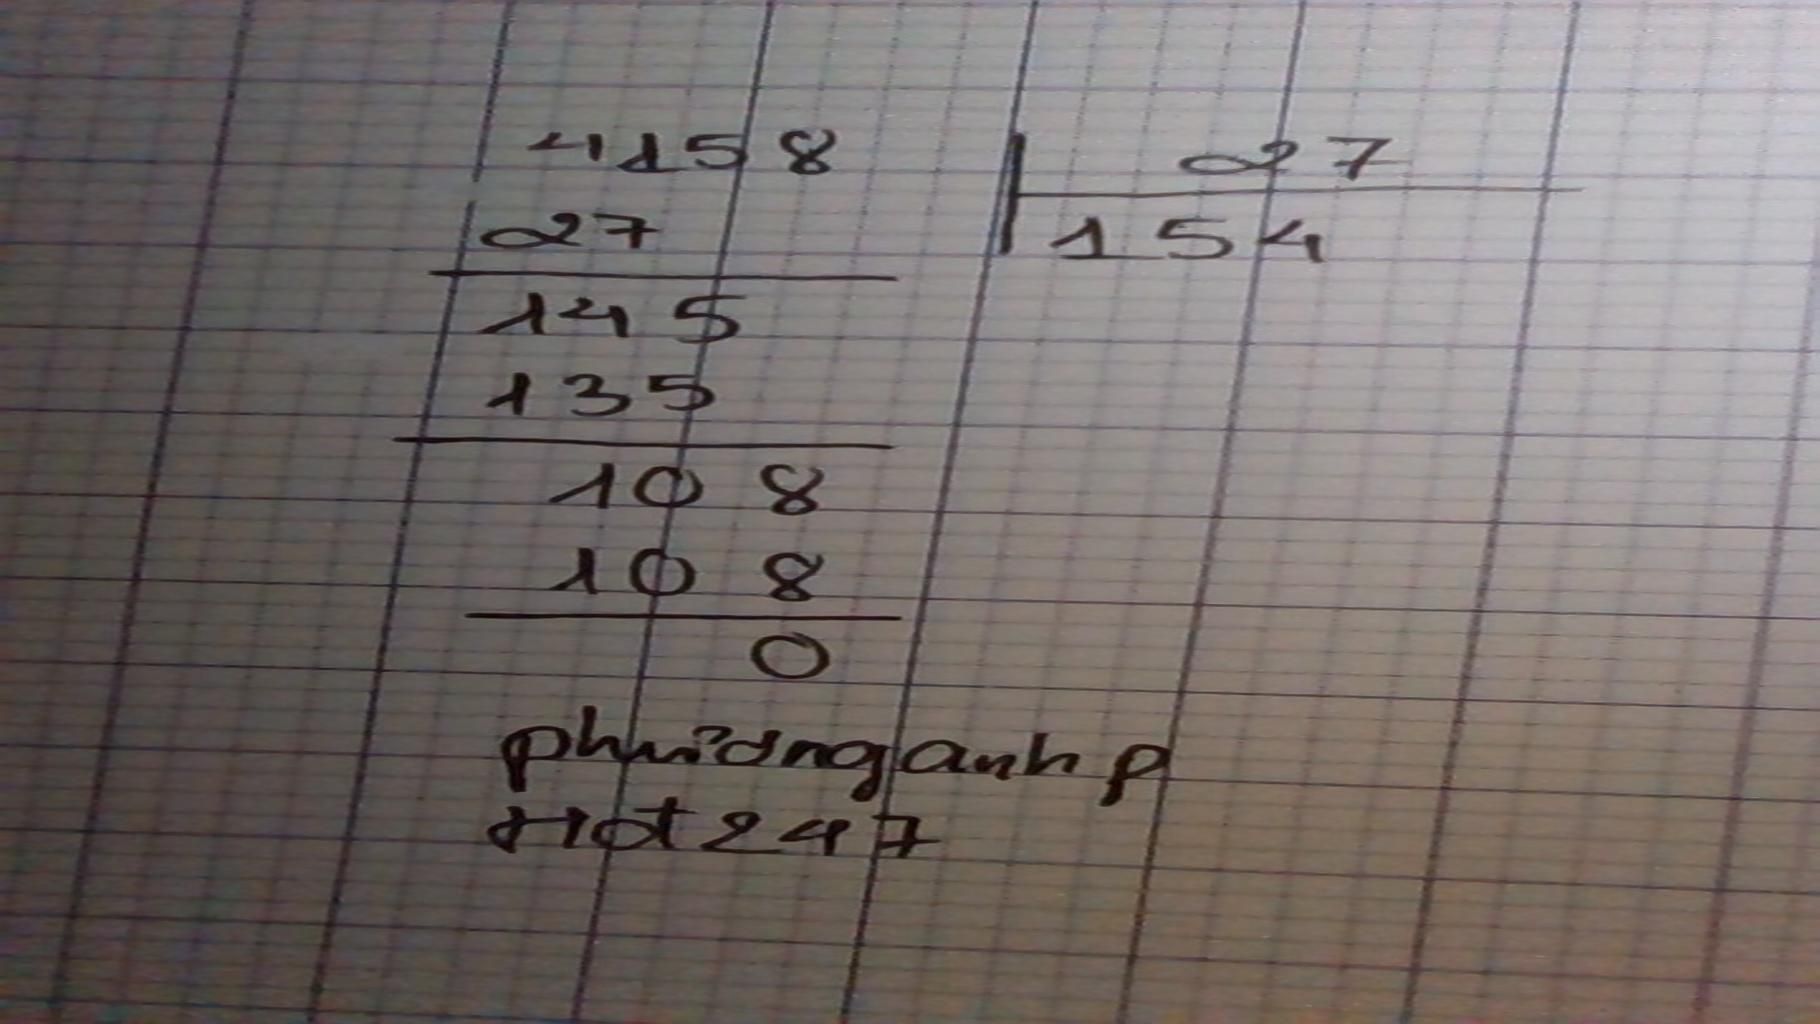 4158 27
27 154
145
135
108
108
0
phương anh p
Hot247